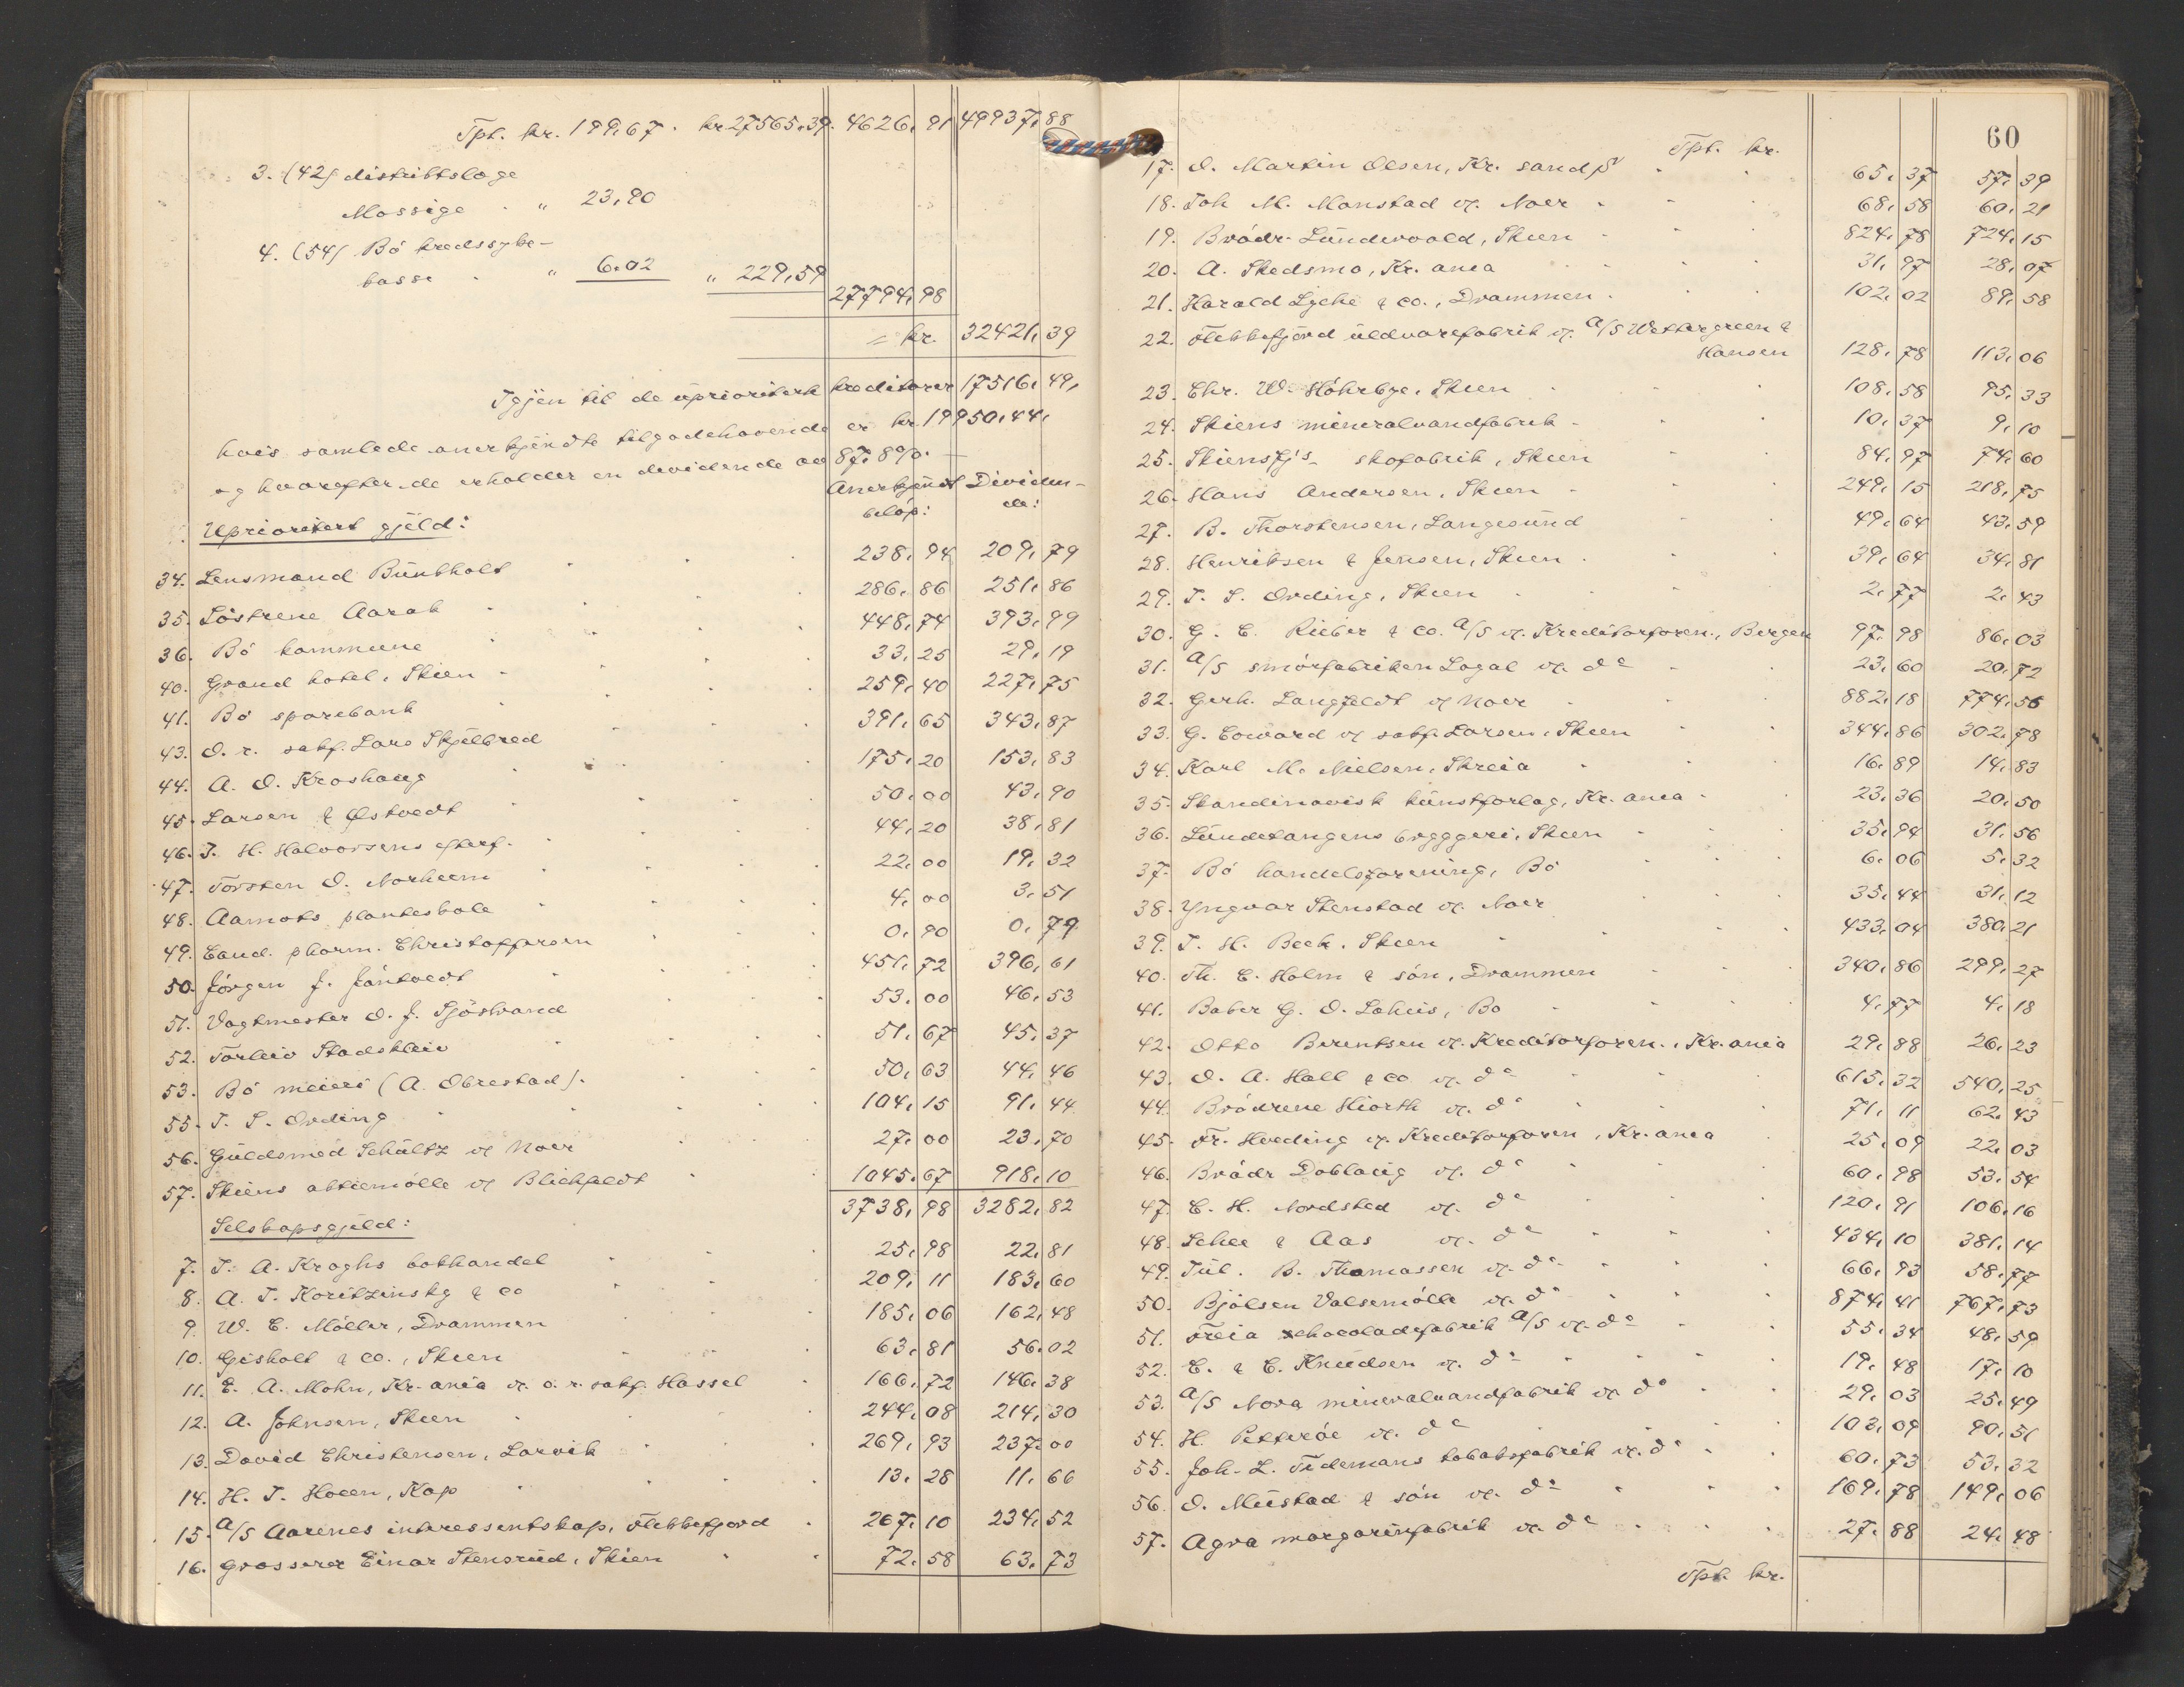 Tpt. kr. 199.67. kr. 27565.39. 4626.91 49937.88
3. (42) distriktslæge
Mossige " 23,90
4. (54) Bö kredssyke-
kasse " 6.02 " 229.59
27794.98
= kr. 32421.39
Igjen til de uprioriterte kreditorer 17516.49,
hvis samlede anerkjendte tilgodehavende er kr. 19950.44.
og hvorefter de erholder en dividende av 87.8%. —
Anerkjendt beløp: Dividen-de:
Uprioritert gjæld:
34. Lensmand Buntholt 238.94 209.79
35. Söstrene Aarak 286.86 251.86
36. Bö kommune 448.74 393.99
40. Grand hotel, Skien 33.25 29.19
41. Bö sparebank 259.40 227.75
43. O.r. sakf. Lars Skjelbred 391.65 343.87
44. A. O. Kroshaug 175.20 153.83
45. Larsen & Østvedt 50.00 43.90
46. T. H. Halvorsens efterf. 44.20 38.81
47. Torsten O. Norheim 22.00 19.32
48. Aamots planteskole 4.00 3.51
49. Cand. pharm. Christoffersen 0.90 0.79
50. Jörgen J. Jöntvedt 451.72 396.61
51. Vagtmester O. J. Sjöstrand 53.00 46.53
52. Torleiv Stadskleiv 51.67 45.37
53. Bö meieri (A. Obrestad). 50.63 44.46
55. T. S. Ording 104.15 91.44
56. Guldsmed Schultz v. Noer 27.00 23.70
57. Skiens aktiemölle v. Blichfeldt 1045.67 918.10
3738.98 3282.82
Selskapsgjæld:
7. T. A. Kraghs bokhandel 25.98 22.81
8. A. T. Koritzinsky & co 209.11 183.60
9. W. C. Möller, Drammen 185.06 162.48
10. Gisholt & co., Skien 63.81 56.02
11. E. A. Mohn, Kr.ania v. o.r. sakf. Hassel 166.72 146.38
12. A. Johnsen, Skien 244.08 214.30
13. David Christensen, Larvik 269.93 237.00
14. H. T. Hoeen, Kap 13.28 11.66
15. A/S Aarenes interessentskap, Flekkefjord 267.10 234.52
16. Grosserer Einar Stensrud, Skien 72.58 63.73
60
Tpt. kr.
17. O. Martin Olsen, Kr.sand S 65.37 57.39
18. Joh M. Monstad v. Noer 68.58 60.21
19. Brödr. Lundevoald, Skien 824.78 724.15
20. A. Skedsmo, Kr.ania 31.97 28.07
21. Harald Lyche & co., Drammen 102.02 89.58
22. Flekkefjord uldvarefabrik v. A/S Wettergreen &
Hansen 128.78 113.06
23. Chr. W. Höhrbye, Skien 108.58 95.33
24. Skiens mineralvandfabrik 10.37 9.10
25. Skiensfj's skofabrik, Skien 84.97 74.60
26. Hans Andersen, Skien 249.15 218.75
27. B. Thorstensen, Langesund 49.64 43.59
28. Henriksen & Jensen, Skien 39.64 34.81
29. T. S. Ording, Skien 2.77 2.43
30. G. C. Rieber & co. A/S v. Kreditorforen., Bergen 97.98 86.03
31. A/S smörfabriken Logal v. do 23.60 20.72
32. Gerh. Langfeldt v. Noer 882.18 774.56
33. G. Coward v. sakf. Larsen, Skien 344.86 302.78
34. Karl M. Nielsen, Skreia 16.89 14.83
35. Skandinavisk kunstforlag, Kr.ania 23.36 20.50
36. Lundetangens bryggeri, Skien 35.94 31.56
37. Bö handelsforening, Bö 6.06 5.32
38. Yngvar Stenstad v. Noer 35.44 31.12
39. T. H. Beck, Skien 433.04 380.21
40. Th. C. Holm & sön, Drammen 340.86 299.27
41. Baker G. O. Lohus, Bö 4.77 4.18
42. Otto Berentsen v. Kreditorforen., Kr.ania 29.88 26.23
43. O. A. Hall & co v. do 615.32 540.25
44. Brödrene Hiorth v. do 71.11 62.43
45. Fr. Hveding v. Kreditorforen, Kr.ania 25.09 22.03
46. Brödr Doblaug v. do 60.98 53.54
47. C. H. Nordsted v. do 120.91 106.16
48. Schee & Aas v. do 434.10 381.14
49. Jul. B. Thomassen v. do 66.93 58.77
50. Bjölsen Valsemölle v. do 874.41 767.73
51. Freia chocoladefabrik A/S v. do 55.34 48.59
52. C. & C. Knudsen v. do 19.48 17.10
53. A/S Nora mineralvandfabrik v. do 29.03 25.49
54. H. Petteröe v. do 103.09 90.51
55. Joh. L. Tidemans tobaksfabrik v. do 60.73 53.32
56. O. Mustad & sön v. do 169.78 149.06
57. Agra margarinfabrik v. do 27.88 24.48
Tpt. kr.